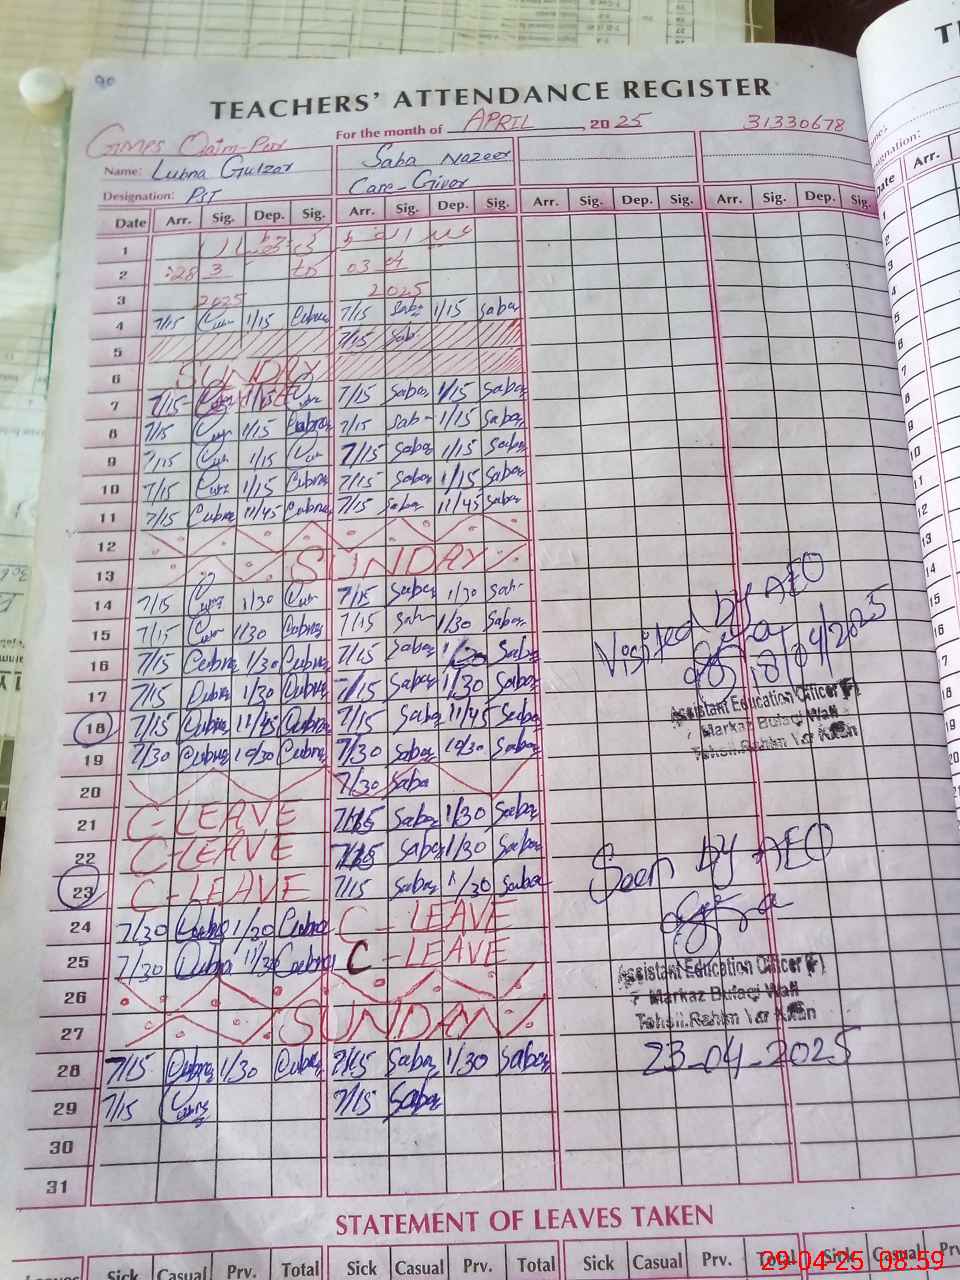 90
TEACHERS' ATTENDANCE REGISTER
For the month of APRIL, 2025 31330678
GMPS
Name: Lubna Gulzar Saba Nazeer
Designation: PST Care-Giver
Date Arr. Sig. Dep. Sig. Arr. Sig. Dep. Sig. Arr. Sig. Dep. Sig. Arr. Sig. Dep. Sig.
1
2 28 3 to 03 04
3 2025 2025
4 7/15 1/15 Lubna 7/15 Saba 1/15 Saba
5 7/15 Sab
6 SUNDAY
7 7/15 1/15 7/15 Saba 1/15 Saba
8 7/15 1/15 Lubna 7/15 Sab 1/15 Saba
9 7/15 1/15 7/15 Saba 1/15 Saba
10 7/15 1/15 Lubna 7/15 Saba 1/15 Saba
11 7/15 Lubna 11/45 Lubna 7/15 Saba 11/45 Saba
12
13 SUNDAY
14 7/15 1/30 7/15 Saba 1/30 Sab
15 7/15 1/30 Lubna 7/15 Sab 1/30 Saba
16 7/15 Lubna 1/30 Lubna 7/15 Saba Saba
17 7/15 Lubna 1/30 Lubna 7/15 Saba 1/30 Saba
18 7/15 Lubna 11/45 Lubna 7/15 Saba 11/45 Saba
19 7/30 Lubna 10/30 Lubna 7/30 Saba 10/30 Saba
20 7/30 Saba
21 C-LEAVE 7/15 Saba 1/30 Saba
22 C-LEAVE 7/15 Saba 1/30 Saba
23 C-LEAVE 7/15 Saba 1/30 Saba
24 7/30 Lubna 1/30 Lubna C-LEAVE
25 7/30 Lubna 11/30 Lubna C-LEAVE
26
27 SUNDAY
28 7/15 Lubna 1/30 Lubna 7/15 Saba 1/30 Saba
29 7/15 7/15 Saba
30
31
Visited by AEO
18/04/2025
Assistant Education Officer (F)
Markaz Bulaqi Wali
Tehsil Rahim Yar Khan
Seen by AEO
Assistant Education Officer (F)
Markaz Bulaqi Wali
Tehsil Rahim Yar Khan
23-04-2025
STATEMENT OF LEAVES TAKEN
Leaves Sick Casual Prv. Total Sick Casual Prv. Total Sick Casual Prv. Total Sick Casual Prv.
29-04-25 08:59
Designation:
Date Arr.